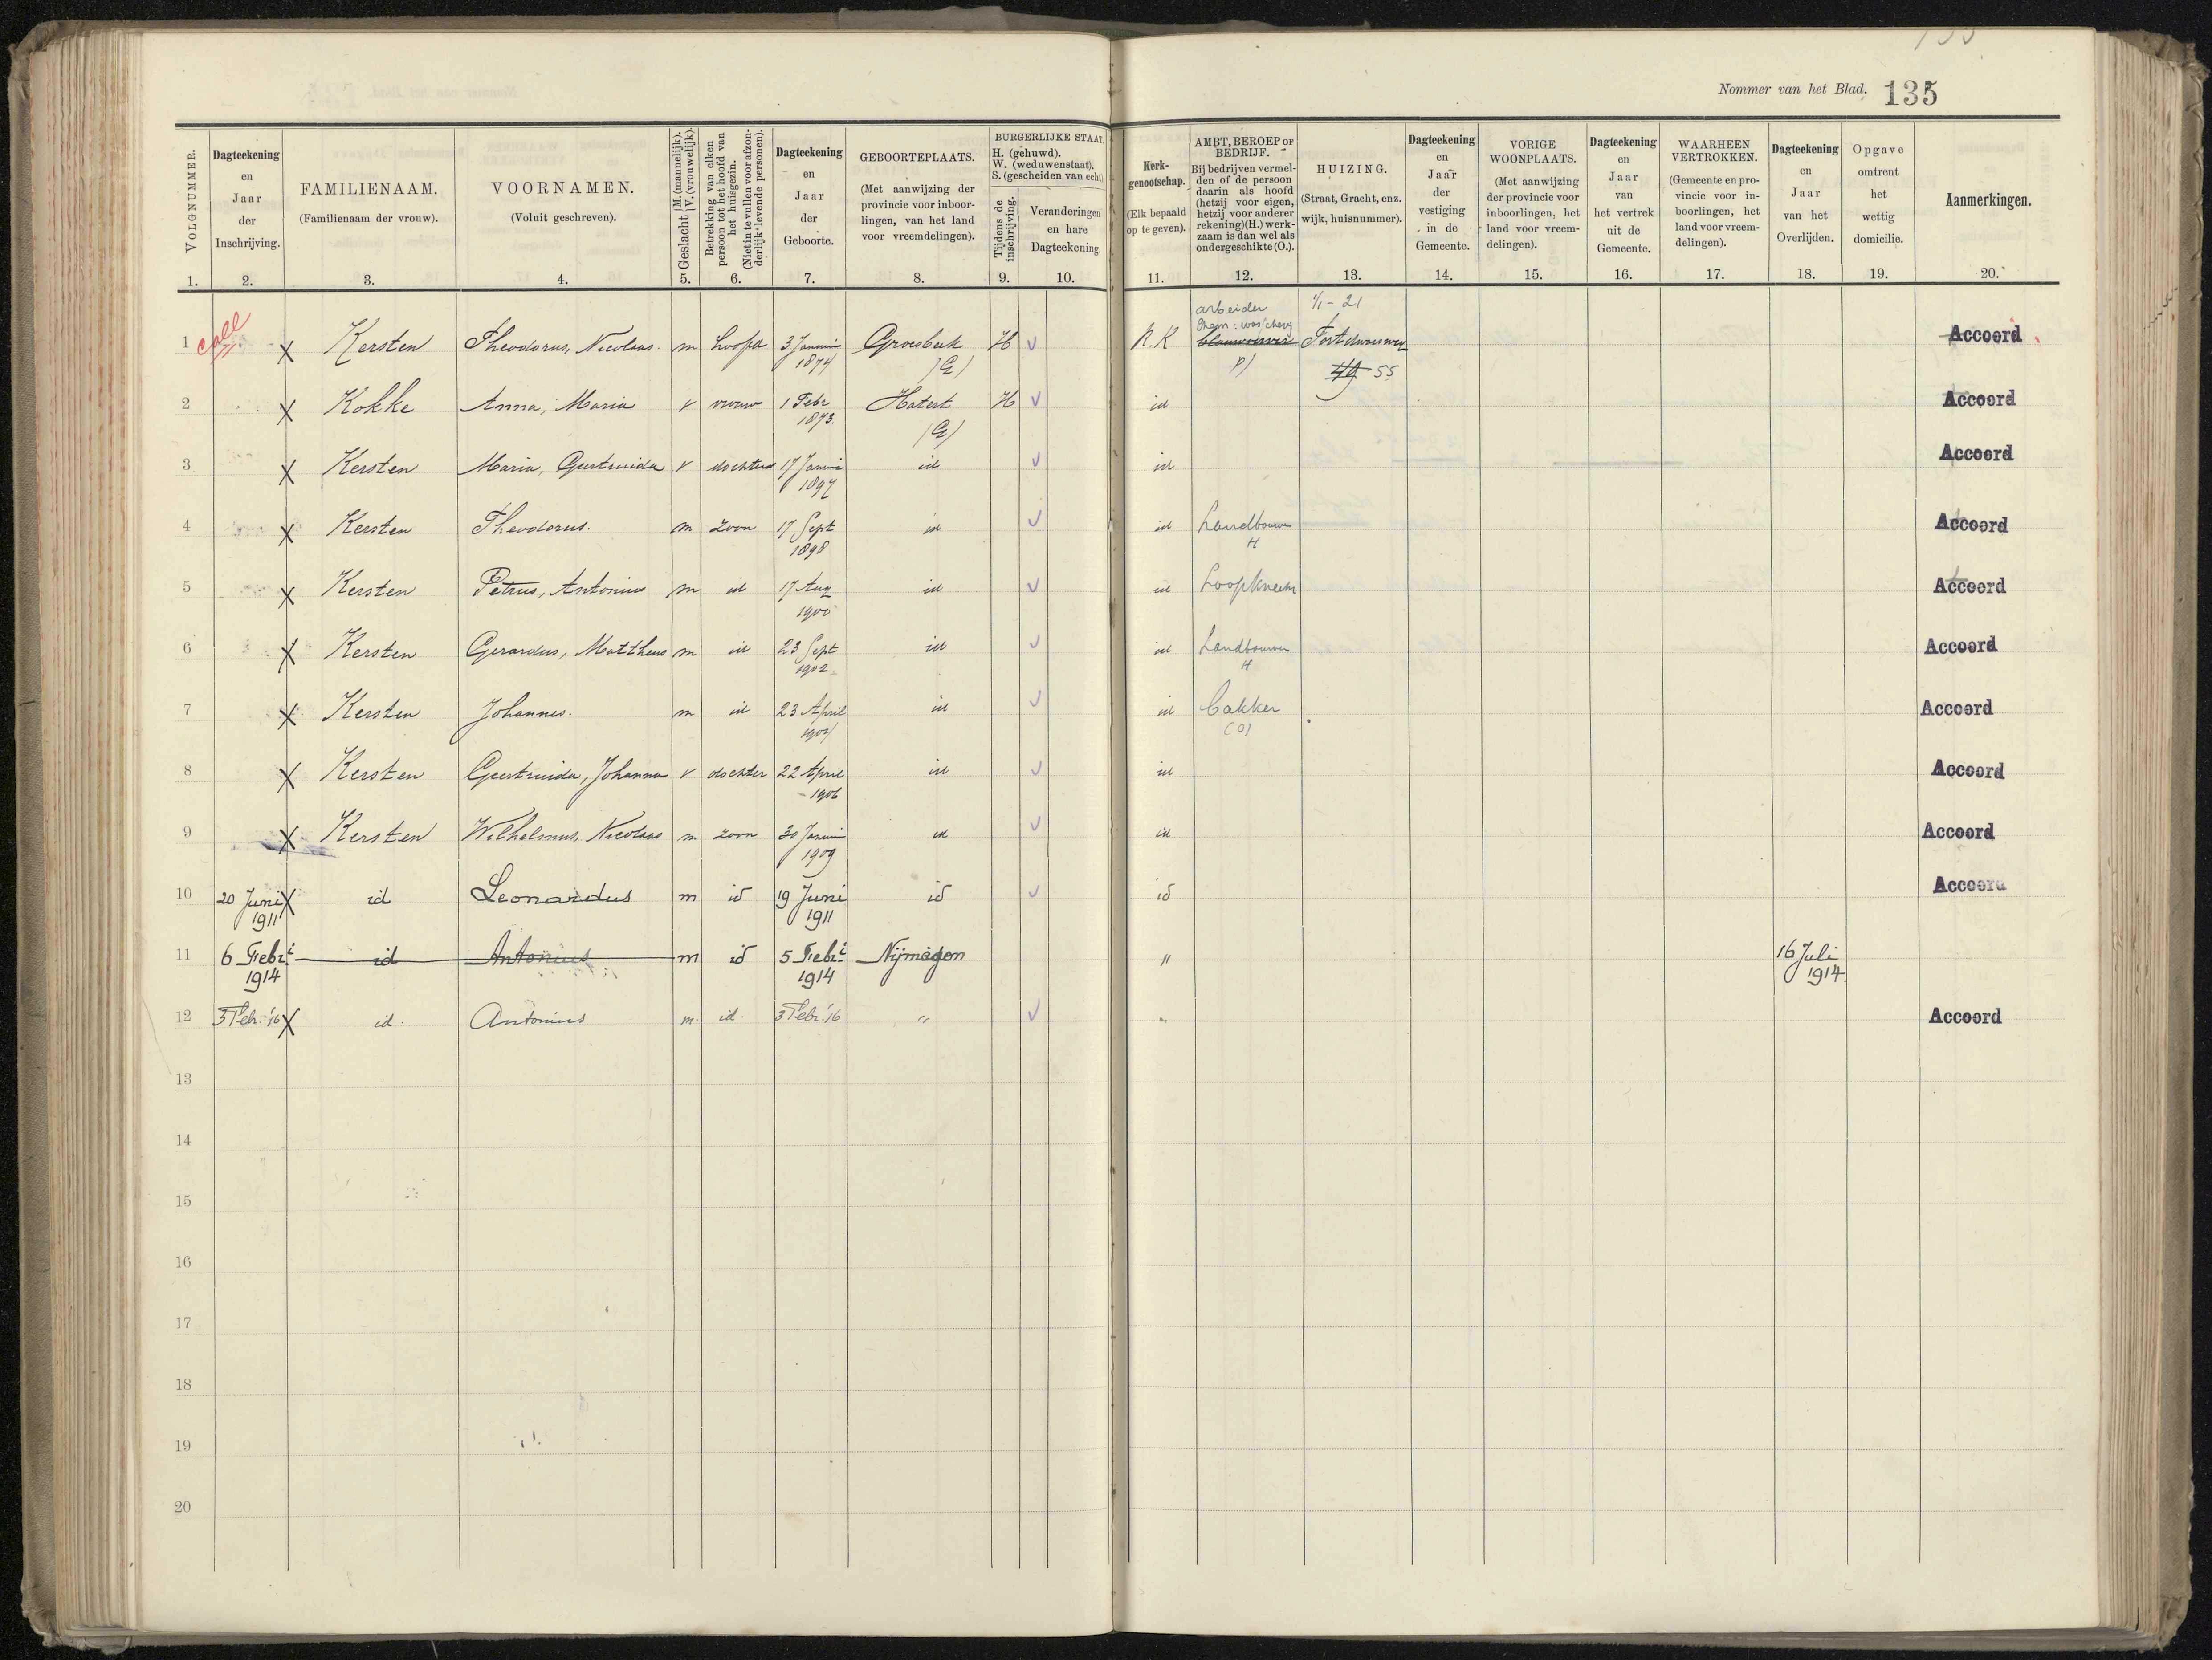 Nommer van het Blad. 135
VOLGNUMMER.
1.
Dagteekening
en
Jaar
der
Inschrijving.
2.
FAMILIENAAM.
(Familienaam der vrouw).
3.
VOORNAMEN.
(Voluit geschreven).
4.
Geslacht M. (mannelijk). V. (vrouwelijk).
5.
Betrekking van elken
persoon tot het hoofd van
het huisgezin.
(Niet in te vullen voor afzon-
derlijk levende personen).
6.
Dagteekening
en
Jaar
der
Geboorte.
7.
GEBOORTEPLAATS.
(Met aanwijzing der
provincie voor inboor-
lingen, van het land
voor vreemdelingen).
8.
BURGERLIJKE STAAT.
H. (gehuwd).
W. (weduwenstaat).
S. (gescheiden van echt)
Tijdens de
inschrijving.
9.
Veranderingen
en hare
Dagteekening.
10.
Kerk-
genootschap.
(Elk bepaald
op te geven).
11.
AMBT, BEROEP OF
BEDRIJF.
Bij bedrijven vermel-
den of de persoon
daarin als hoofd
(hetzij voor eigen,
hetzij voor anderer
rekening)(H.) werk-
zaam is dan wel als
ondergeschikte (O.).
12.
HUIZING.
(Straat, Gracht, enz.
wijk, huisnummer).
13.
Dagteekening
en
Jaar
der
vestiging
in de
Gemeente.
14.
VORIGE
WOONPLAATS.
(Met aanwijzing
der provincie voor
inboorlingen, het
land voor vreem-
delingen).
15.
Dagteekening
en
Jaar
van
het vertrek
uit de
Gemeente.
16.
WAARHEEN
VERTROKKEN.
(Gemeente en pro-
vincie voor in-
boorlingen, het
land voor vreem-
delingen).
17.
Dagteekening
en
Jaar
van het
Overlijden.
18.
Opgave
omtrent
het
wettig
domicilie.
19.
Aanmerkingen.
20.
arbeider 1/1 - 21
1 X Kersten Theodorus, Nicolaas. m hoofd 3 Januari Groesbeek H V R.K Accoord
1874 (G) 49 55
2 X Kokke Anna, Maria v vrouw 1 Febr Hatert H V id Accoord
1873. (G)
3 X Kersten Maria, Geertruida v dochter 17 Januari id V id Accoord
1897
4 X Kersten Theodorus. m zoon 17 Sept id V id Landbouwer Accoord
1898 H
5 X Kersten Petrus, Antonius m id 17 Aug id V id Loopknecht Accoord
1900
6 X Kersten Gerardus, Mattheus m id 23 Sept id V id Landbouwer Accoord
1902 H
7 X Kersten Johannes. m id 23 April id V id bakker Accoord
1904 (O)
8 X Kersten Geertruida, Johanna v dochter 22 April id V id Accoord
1906
9 X Kersten Wilhelmus, Nicolaas m zoon 30 Januari id V id Accoord
1909
10 20 Juni X id Leonardus m id 19 Juni id V id Accoord
1911 1911
11 6 Febri id Antonius m id 5 Febri Nijmegen " 16 Juli
1914 1914 1914
12 5 Febr. '16 X id. Antonius m. id. 3 Febr. '16 " V " Accoord
13
14
15
16
17
18
19
20